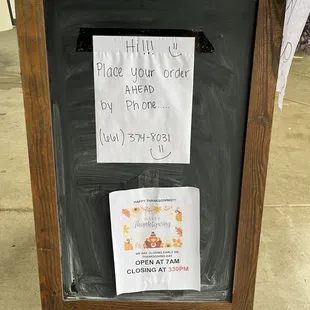 Hi!!!
Place your order
AHEAD
by Phone....
(661) 374-8031
HAPPY THANKSGIVING!!
Thanksgiving
WE ARE CLOSING EARLY ON
THANKSGIVING DAY
OPEN AT 7AM
CLOSING AT 330PM